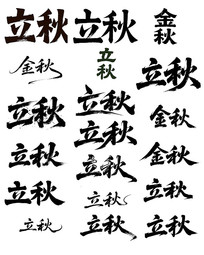 立秋
立秋
金秋
金秋
立秋
立秋
立秋
立秋
金秋
立秋
立秋
立秋
金秋
立秋
立秋
立秋
立秋
立秋
立秋